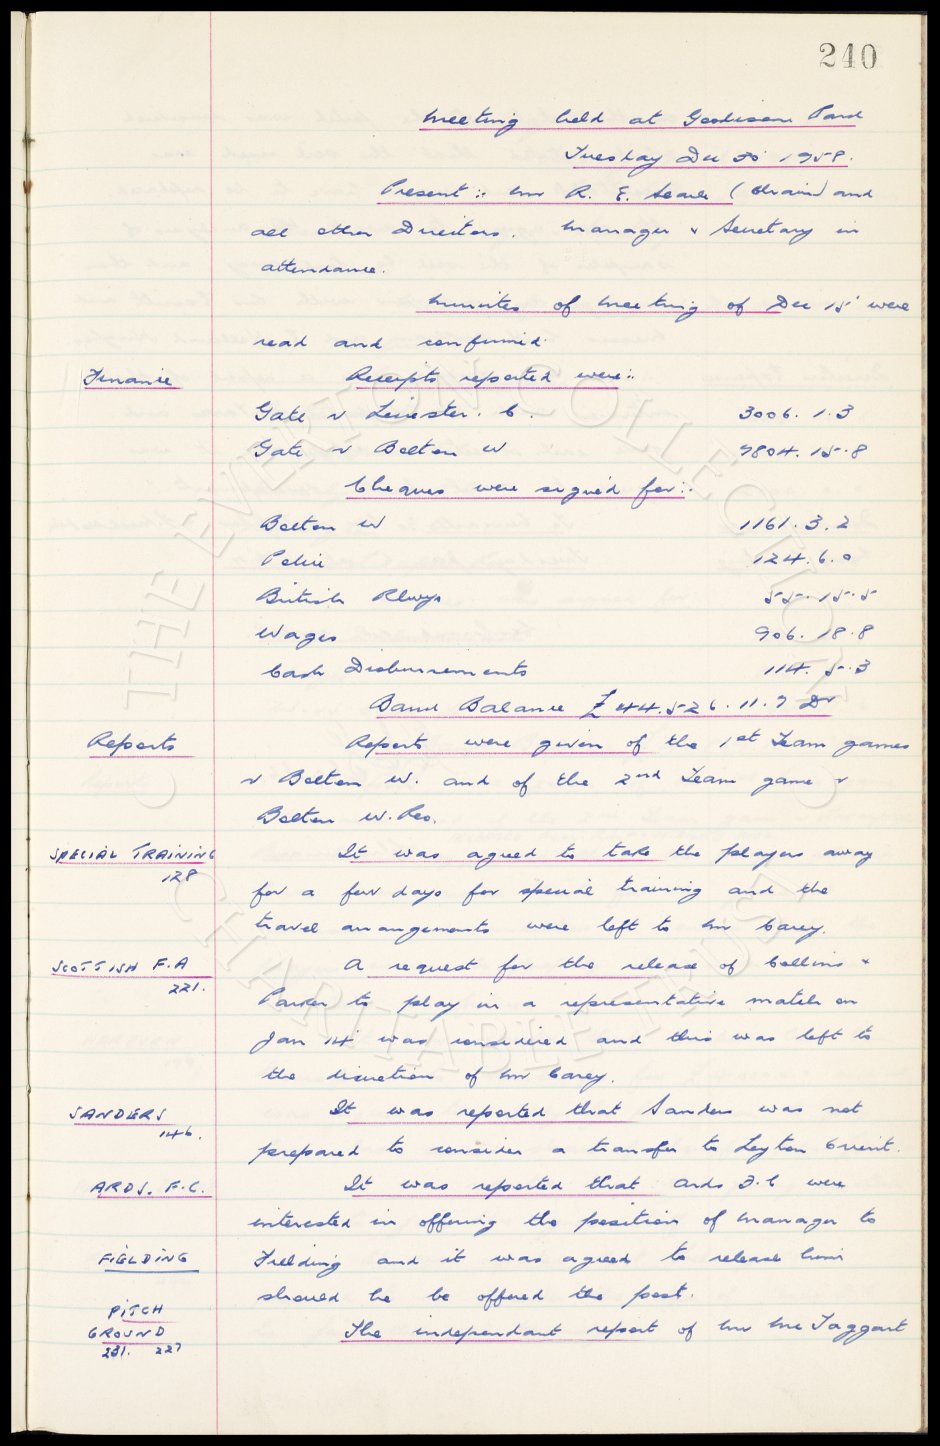 240
Meeting held at Goodison Park
Tuesday Dec 30' 1958.
Present :- Mr R. E. Searle (Chair) and
all other Directors. Manager & Secretary in
attendance.
Minutes of meeting of Dec 15' were
read and confirmed.
Finance Receipts reported were:-
Gate v Leicester. C. 3006. 1. 3
Gate v Bolton W 9804. 15. 8
Cheques were signed for:-
Bolton W 1161. 3. 2
Police 124. 6. 0
British Rlwys 55. 15. 5
Wages 906. 18. 8
Cash Disbursements 114. 5. 3
Bank Balance £44.526. 11. 9 Dr
Reports Reports were given of the 1st Team games
v Bolton W. and of the 2nd Team game v
Bolton W. Res.
SPECIAL TRAINING It was agreed to take the players away
128
for a few days for special training and the
travel arrangements were left to Mr Carey.
SCOTTISH F.A A request for the release of Collins &
221.
Parker to play in a representative match on
Jan 14' was considered and this was left to
the discretion of Mr Carey.
SANDERS It was reported that Sanders was not
146.
prepared to consider a transfer to Leyton Orient.
ARDS. F.C. It was reported that Ards F.C were
interested in offering the position of Manager to
FIELDING Fielding and it was agreed to release him
should he be offered the post.
PITCH
GROUND The independant report of Mr McTaggart
231. 227
© THE EVERTON COLLECTION CHARITABLE TRUST